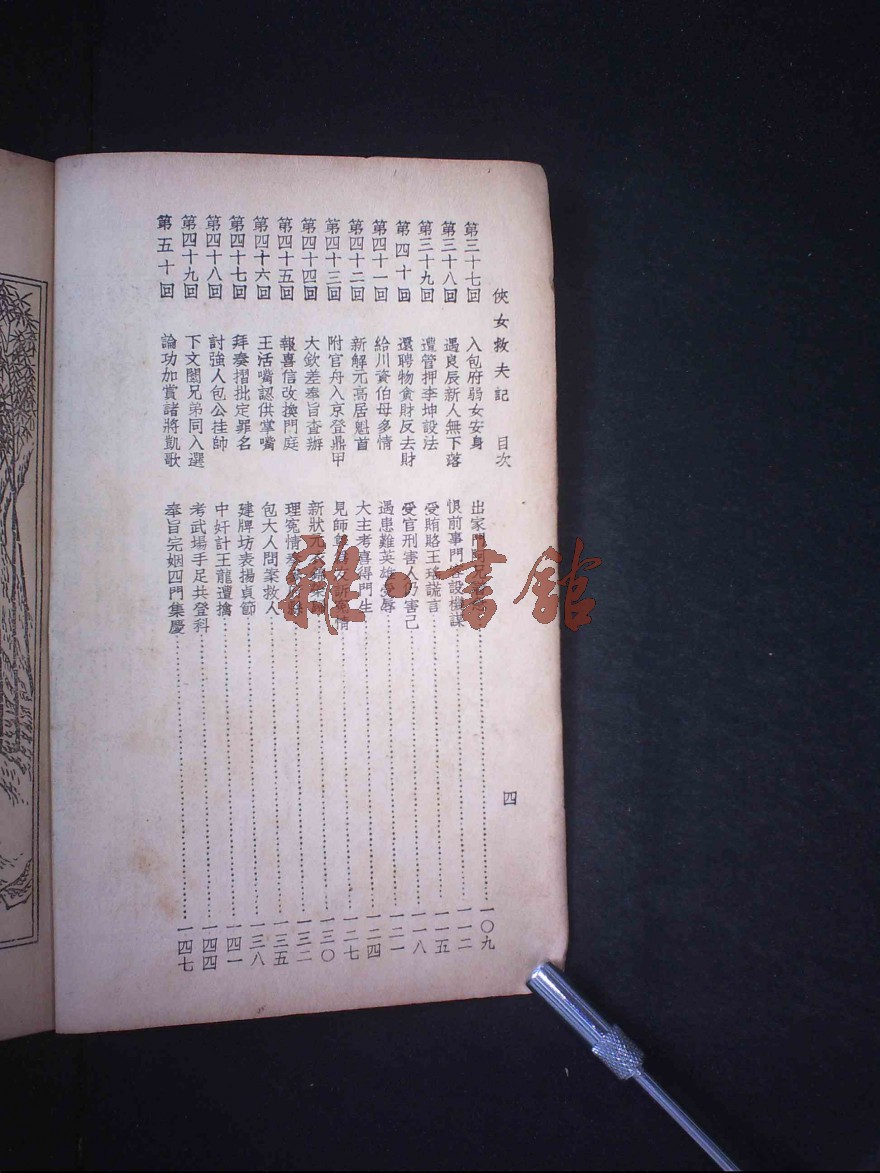 俠女救夫記 目次 四
第三十七回 入包府弱女安身 出家門 一〇九
第三十八回 遇良辰新人無下落 恨前事門客設機謀 一一二
第三十九回 遭管押李坤設法 受賄賂王瑤謊言 一一五
第四十回 還聘物貪財反去財 受官刑害人仍害己 一一八
第四十一回 給川資伯母多情 遇患難英雄受辱 一二一
第四十二回 新解元高居魁首 大主考喜得門生 一二四
第四十三回 附官舟入京登鼎甲 見師 訴冤情 一二七
第四十四回 大欽差奉旨查辦 新狀元 一三〇
第四十五回 報喜信改換門庭 理冤情 一三二
第四十六回 王活嘴認供掌嘴 包大人問案救人 一三五
第四十七回 拜奏摺批定罪名 建牌坊表揚貞節 一三八
第四十八回 討強人包公挂帥 中奸計王龍遭擒 一四一
第四十九回 下文闈兄弟同入選 考武場手足共登科 一四四
第五十回 論功加賞諸將凱歌 奉旨完姻四門集慶 一四七
雜·書館